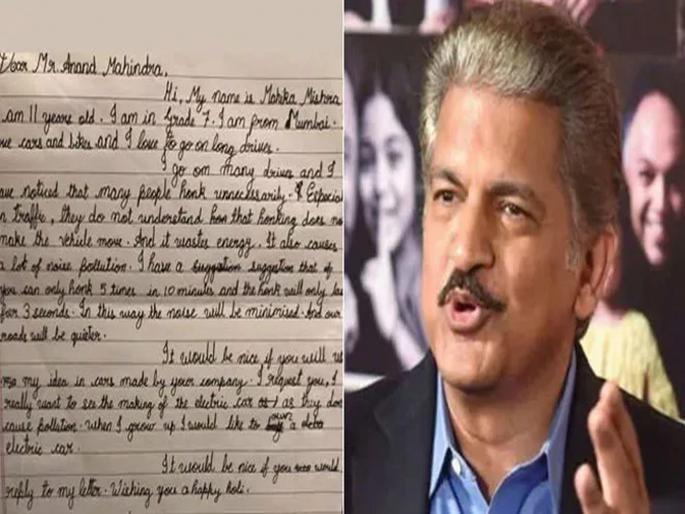 Dear Mr. Anand Mahindra,
Hi, My name is Mahika Mishra
am 11 years old. I am in Grade 7. I am from Mumbai.
cars and bikes and I love to go on long drives.
I go on many drives and I
have noticed that many people honk unnecessarily. Especial
in traffic, they do not understand that honking does no
make the vehicle move. And it wastes energy. It also causes
a lot of noise pollution. I have a suggestion that if
you can only honk 5 times in 10 minutes and the honk will only la
for 3 seconds. In this way the noise will be minimised. And our
roads will be quieter.
It would be nice if you will u
my idea in cars made by your company. I request you, I
really want to see the making of the electric car as they don
cause pollution. When I grow up I would like to own a
electric car.
It would be nice if you would
reply to my letter. Wishing you a happy holi.